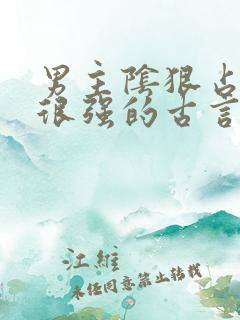 男主陰狠占
很强的古言
江維
未经同意禁止转载